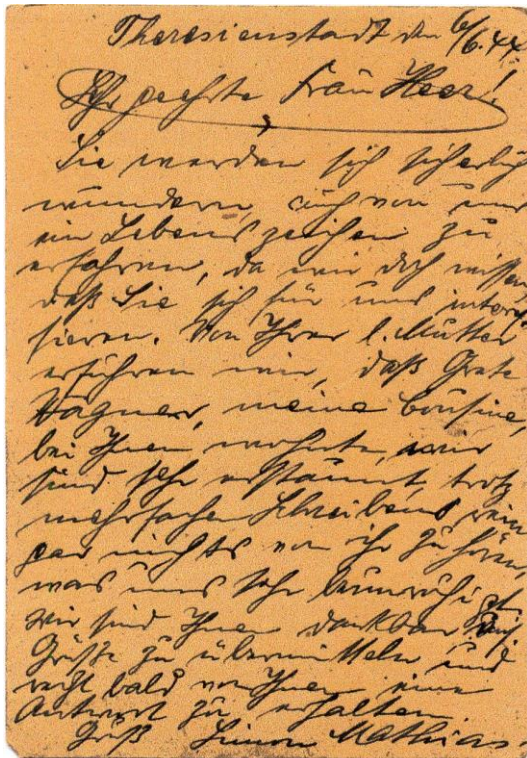 Theresienstadt den 6/6.44
Sehr geehrte Frau Heer!
Sie werden sich sicherlich
wundern, auch von uns
ein Lebenszeichen zu
erfahren, da wir doch wissen
daß Sie sich für uns interes
sieren. Von Ihrer l. Mutter
erfuhren wir, daß Grete
Wagner, meine Cousine,
bei Ihnen wohnte, wir
sind sehr erstaunt, trotz
mehrfachen Schreibens, rein
gar nichts von ihr zu hören,
was uns sehr beunruhigt.
Wir sind Ihnen dankbar
Grüße zu übermitteln und
recht bald von Ihnen eine
Antwort zu erhalten
Gruß Simon Mathias